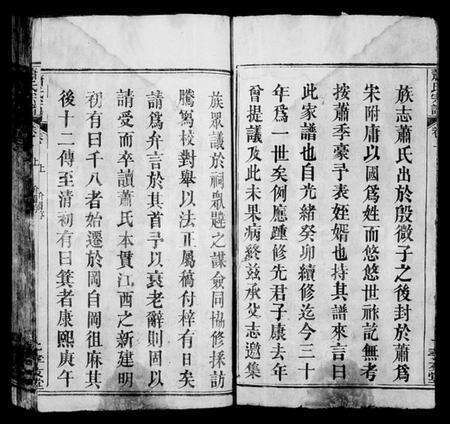 族志蕭氏出於殷微子之後封於蕭爲
宋附庸以國爲姓而悠悠世祀記無考
按蕭季豪予表姪婿也持其譜來言曰
此家譜也自光緒癸卯續修迄今三十
年爲一世矣例應踵修先君子康去年
曾提議及此未果病終茲承父志邀集
族眾議於祠眾韙之謀僉同協修採訪
謄寫校對舉以法正屬稿付梓有日矣
請爲弁言於其首予以衰老辭則固以
請受而卒讀蕭氏本貫江西之新建明
初有曰千八者始遷於岡自岡徂麻其
後十二傳至清初有曰箕者康熙庚午